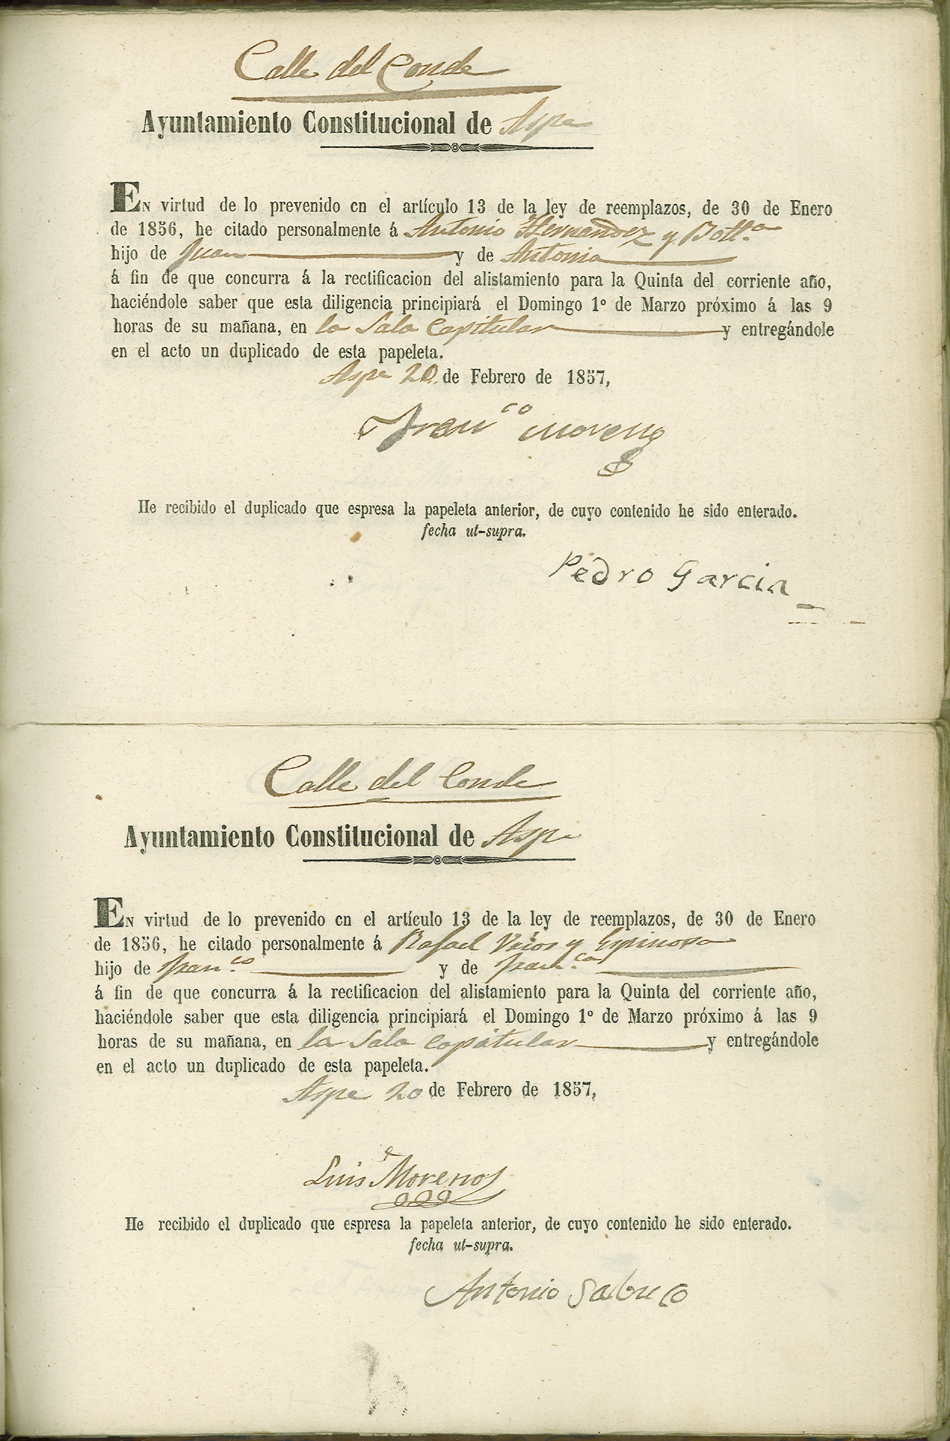 Calle del Conde
Ayuntamiento Constitucional de Aspe
EN virtud de lo prevenido en el artículo 13 de la ley de reemplazos, de 30 de Enero
de 1856, he citado personalmente á Antonio Hernandez y Bott.ª
hijo de Juan y de Antonia
á fin de que concurra á la rectificacion del alistamiento para la Quinta del corriente año,
haciéndole saber que esta diligencia principiará el Domingo 1º de Marzo próximo á las 9
horas de su mañana, en la Sala Capitular y entregándole
en el acto un duplicado de esta papeleta.
Aspe 20 de Febrero de 1857,
Fran.co Moreno
He recibido el duplicado que espresa la papeleta anterior, de cuyo contenido he sido enterado.
fecha ut-supra.
Pedro Garcia
Calle del Conde
Ayuntamiento Constitucional de Aspe
EN virtud de lo prevenido en el artículo 13 de la ley de reemplazos, de 30 de Enero
de 1856, he citado personalmente á Rafael y Espinosa
hijo de Fran.co y de Fran.ca
á fin de que concurra á la rectificacion del alistamiento para la Quinta del corriente año,
haciéndole saber que esta diligencia principiará el Domingo 1º de Marzo próximo á las 9
horas de su mañana, en la Sala capitular y entregándole
en el acto un duplicado de esta papeleta.
Aspe 20 de Febrero de 1857,
Luis Moreno
He recibido el duplicado que espresa la papeleta anterior, de cuyo contenido he sido enterado.
fecha ut-supra.
Antonio Sabuco